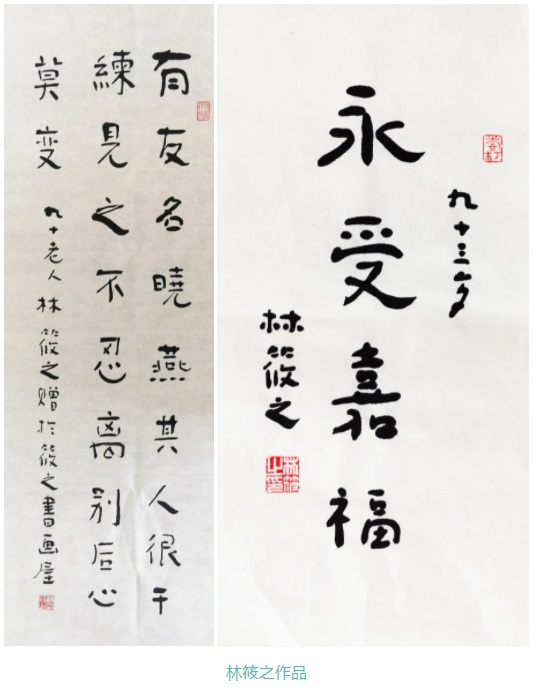 有友名曉燕其人很干
練見之不忍离别后心
莫变 九十老人林筱之赠於筱之書画屋
九十三岁
永受嘉福
林筱之
林筱之印
林筱之作品